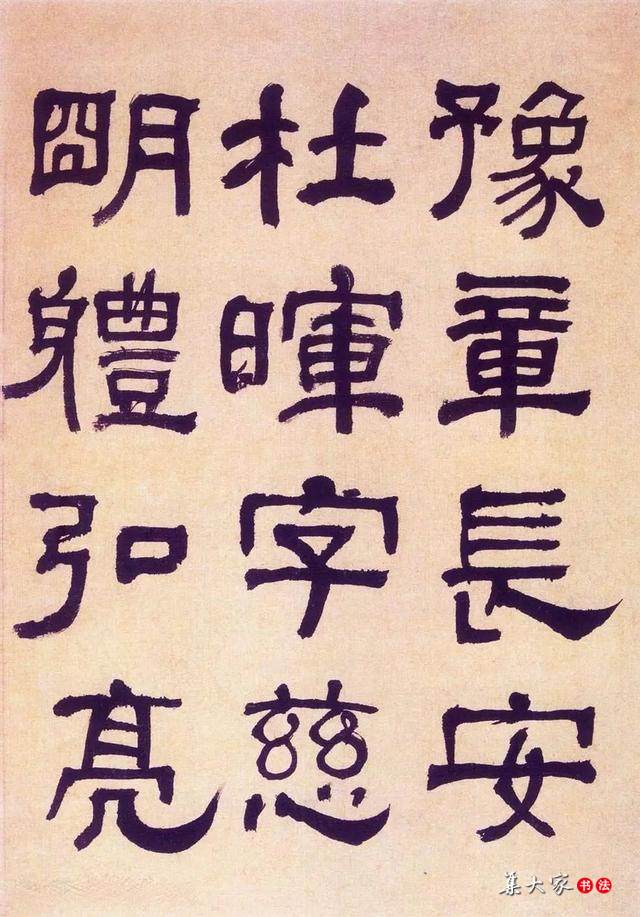 豫章長安
杜暉字慈
明體弘亮
集大家书法